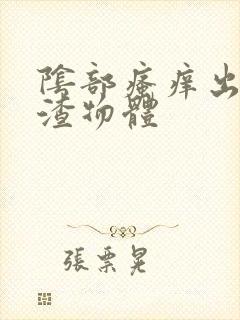 陰部瘙痒出
渣物體
張票晃